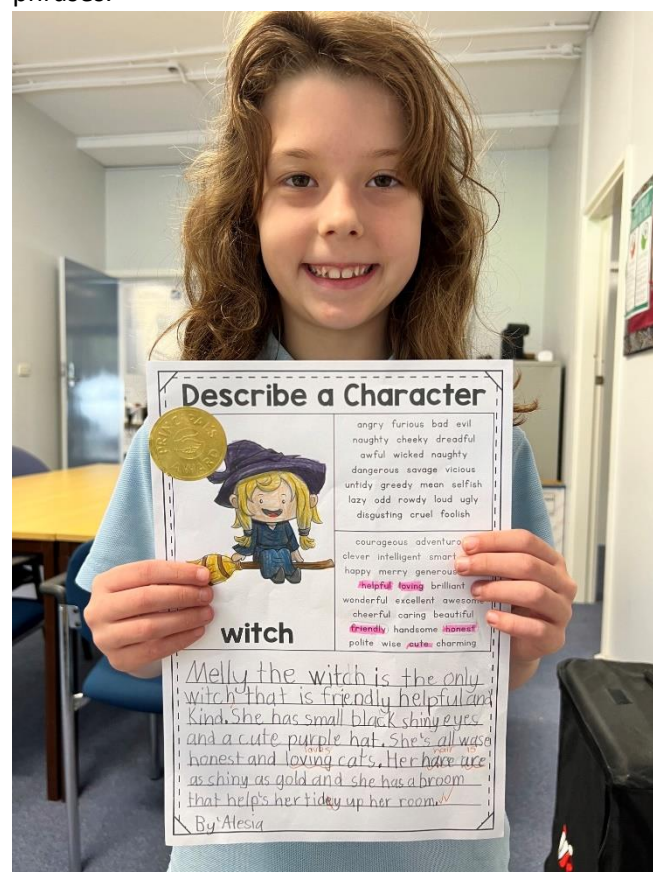 phrases.
Describe a Character
PRINCIPAL'S
AWARD
angry furious bad evil
naughty cheeky dreadful
awful wicked naughty
dangerous savage vicious
untidy greedy mean selfish
lazy odd rowdy loud ugly
disgusting cruel foolish
courageous adventuro
clever intelligent smart
happy merry generous
helpful loving brilliant
wonderful excellent awesome
cheerful caring beautiful
friendly handsome honest
polite wise cute charming
witch
Melly the witch is the only
witch that is friendly helpful and
Kind. She has small black shiny eyes
and a cute purple hat. She's all wase
loves hair is
honest and loving cats. Her hare are
as shiny as gold and she has a broom
that help's her tidey up her room.
By Alesia